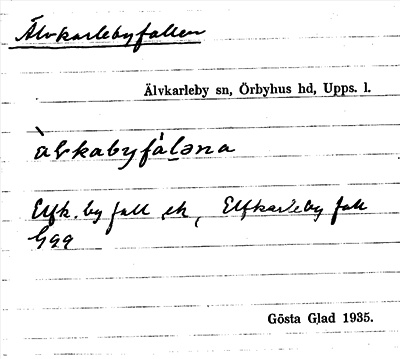 Älvkarlebyfallen
Älvkarleby sn, Örbyhus hd, Upps. l.
àlvkabyfàləna
Elfk. by fall ek, Elfkarleby fall
Gäg
Gösta Glad 1935.